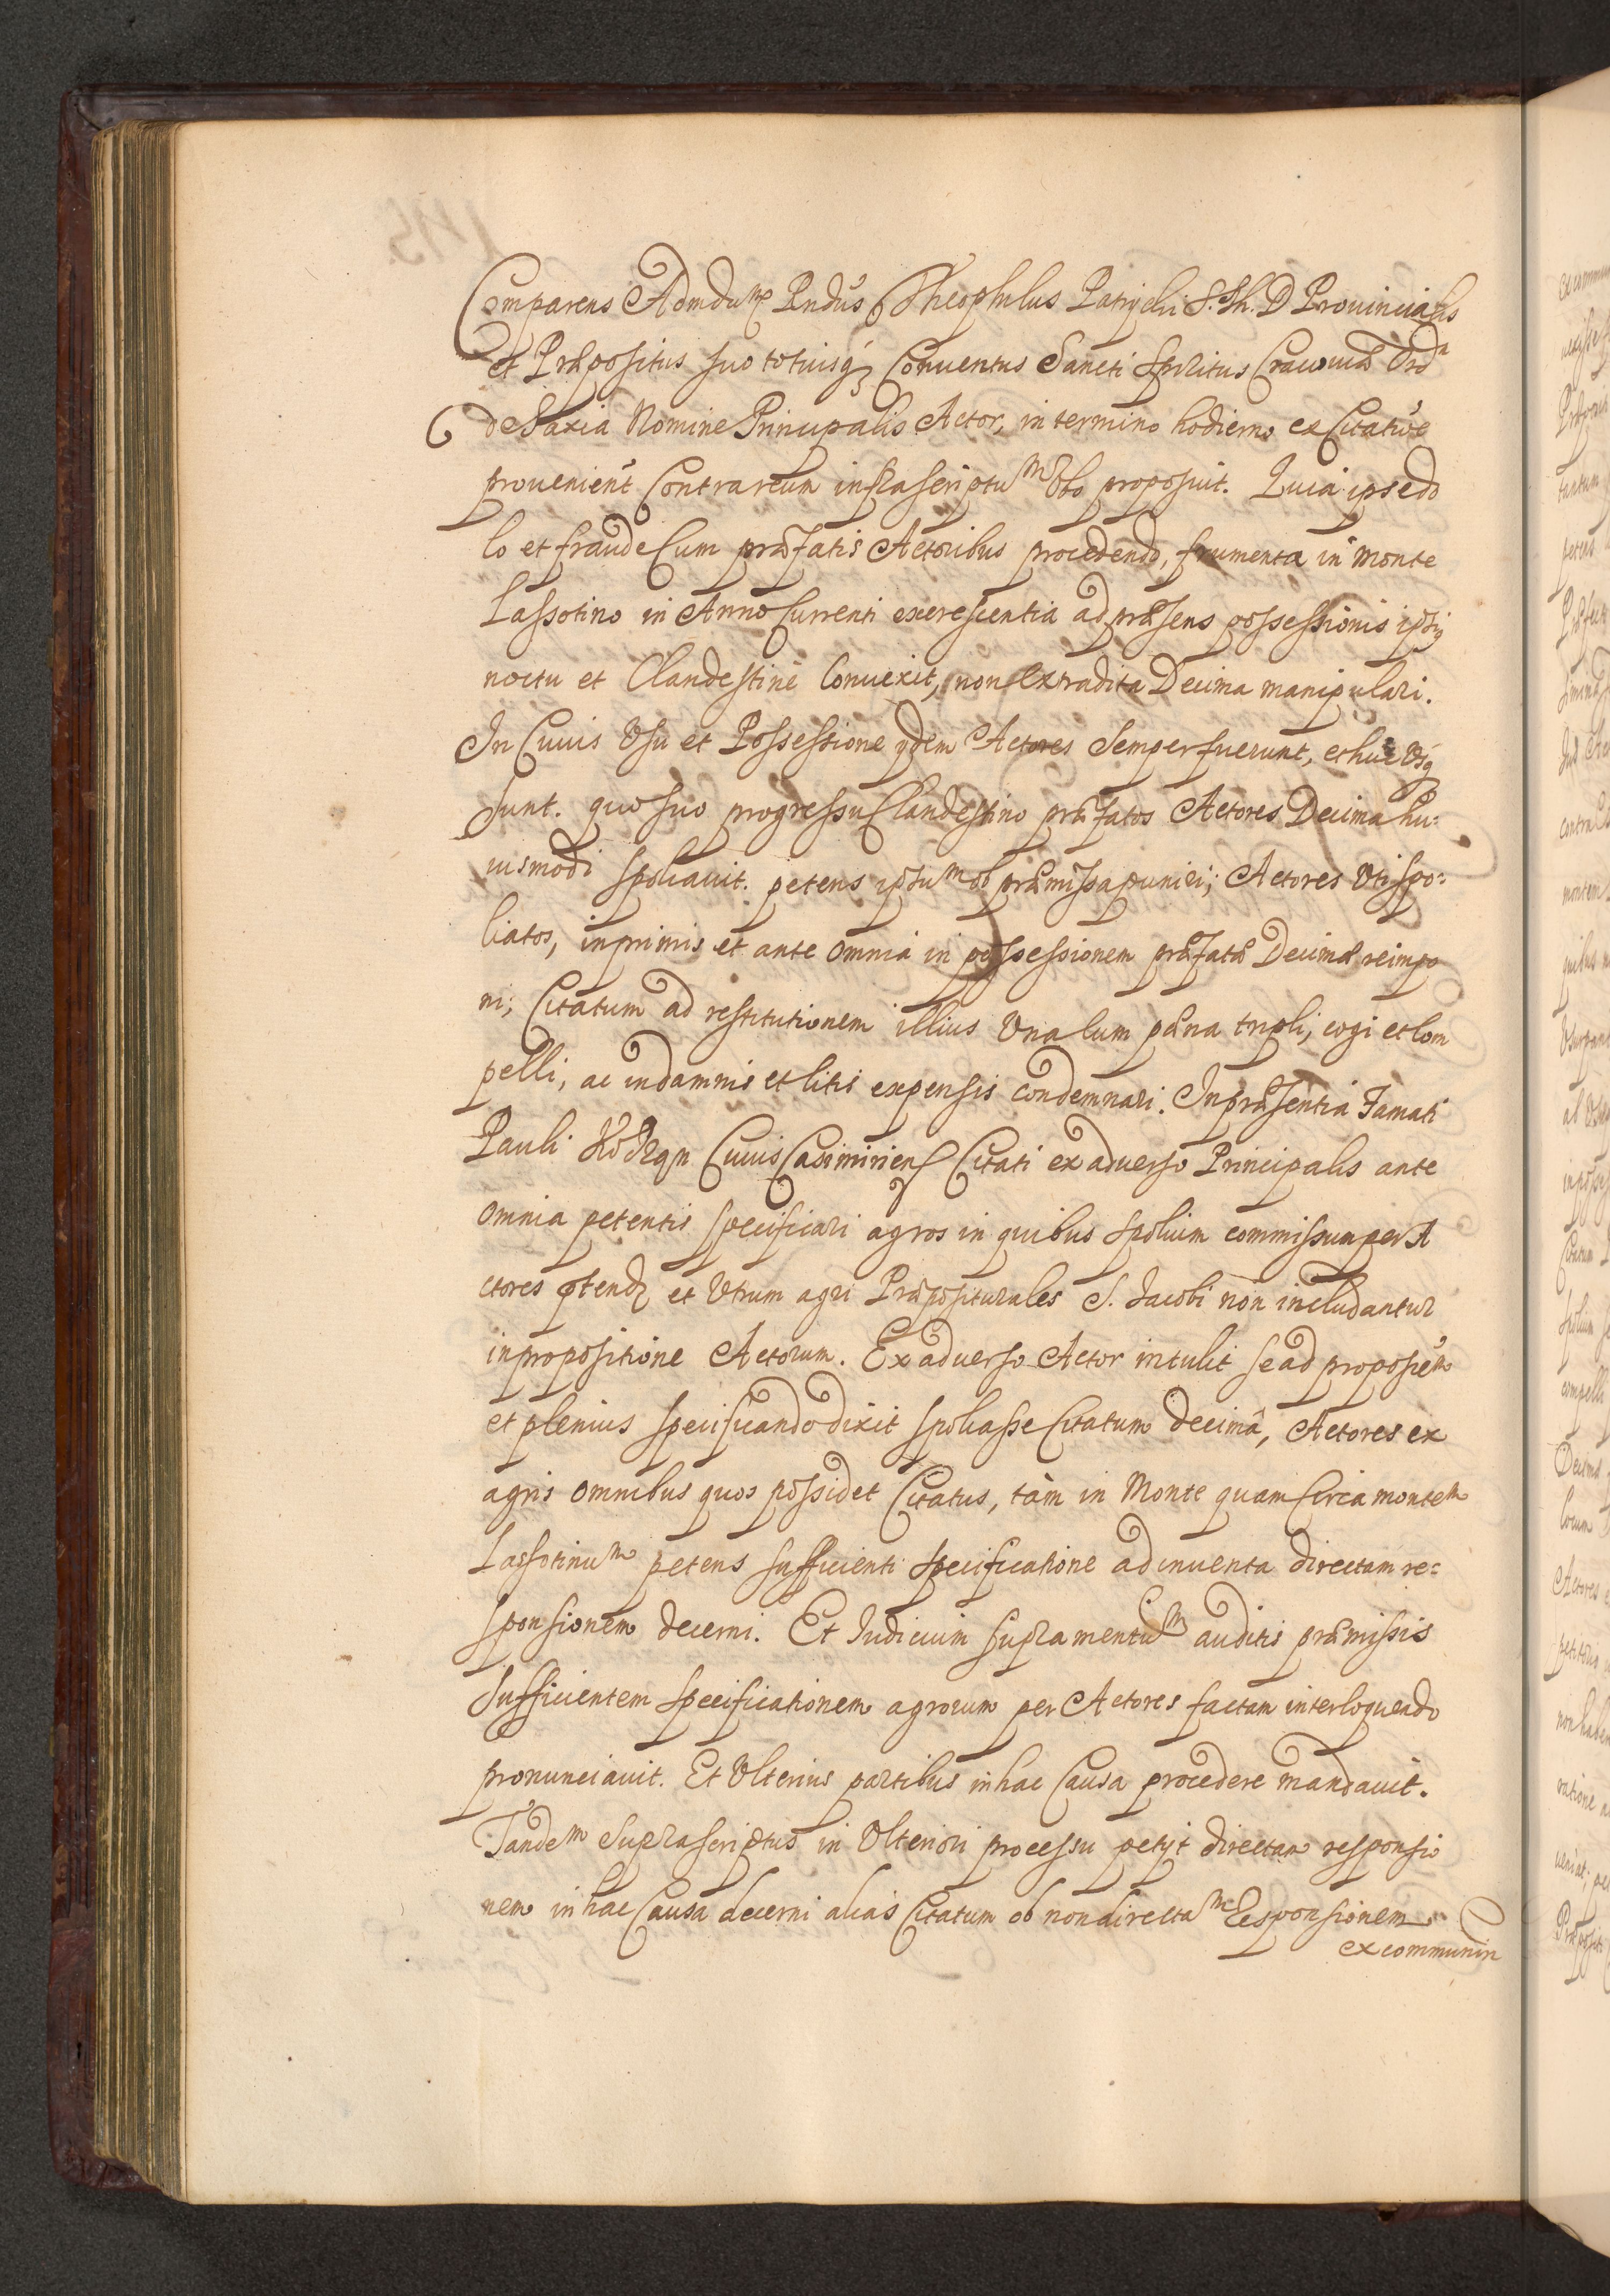 Comparens Admdum Rndus Theophilus Patrycki S. Th. D Prouincialis
et Præpositus suo totiusq; Conuentus Sancti Spiritus Crac Ord
de Saxia Nomine Principalis Actor, in termino hodierno ex Citatioe
prouenient Contra reum infrascriptum Vbo proposuit. Quia ipse do
lo et fraude Cum præfatis Actoribus procedendo, frumenta in Monte
Lassotino in Anno Currenti excrescentia ad præsens possessionis ipsiq
noctu et Clandestinè Conuexit, non extradita Decima manipulari.
In Cuius Vsu et Possessione ydem Actores Semper fuerunt, et huc Vsq
sunt. quo suo progressu Clandestino præfatos Actores Decima hu:
iusmodi spoliauit. petens ipsum ob præmissa puniri; Actores Vti spo:
liatos, inprimis et ante omnia in possessionem præfatæ Decimæ reimpo
ni; Citatum ad restitutionem illius Vna Cum pæna tripli, cogi et Com
pelli, ac in damnis et litis expensis condemnari. In præsentia Famati
Pauli Ciuis Casimiriens Citati ex aduerso Principalis ante
omnia petentis specificari agros in quibus spolium commissum per A
ctores ptend et Vtrum agri Præpositurales S. Jacobi non includantur
in propositione Actorum. Ex aduerso Actor intulit se ad proposiem
et plenius specificando dixit spoliasse Citatum decimâ, Actores ex
agris omnibus quos possidet Citatus, tàm in Monte quam Circa montem
Lassotinum petens sufficienti specificatione adinuenta directam re:
sponsionem decerni. Et Iudicium supramentum auditis præmissis
sufficientem specificationem agrorum per Actores factam interloquendo
pronunciauit. Et Vlterius partibus in hac Causa procedere mandauit.
Tandem Suprascriptus in Vlteriori processu petyt directam responsio
nem in hac Causa decerni alias Citatum ob non directam Responsionem
excommunin